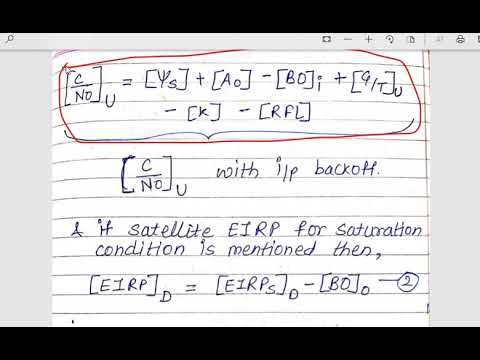 [C/N0]U = [ΨS] + [A0] - [BO]i + [G/T]U
- [K] - [RFL]
[C/N0]U with i/p backoff.
& if satellite EIRP for saturation
condition is mentioned then,
[EIRP]D = [EIRPS]D - [BO]0 — 2